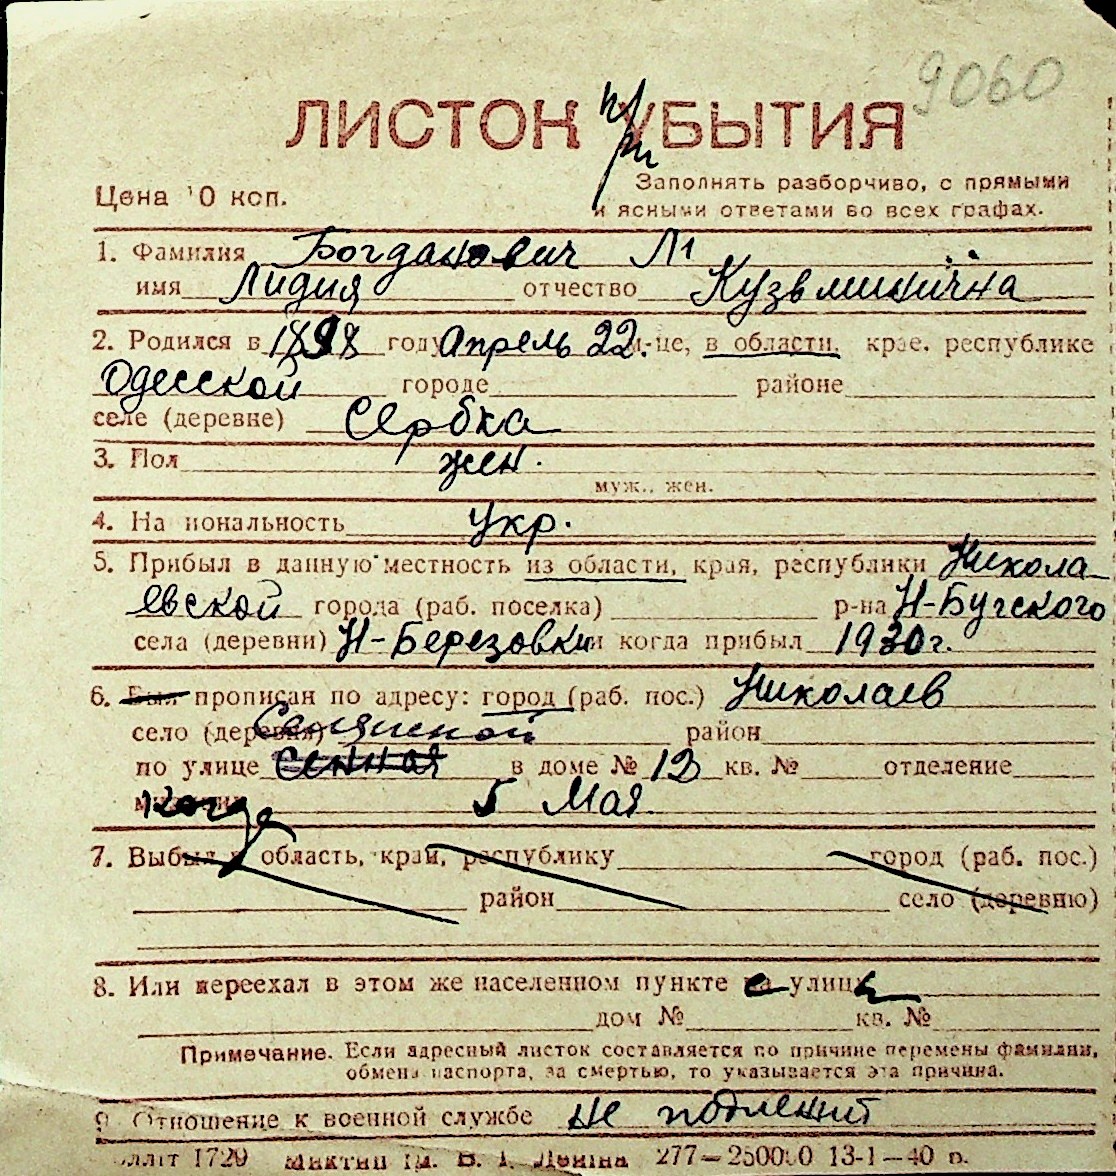 9060
ЛИСТОК УБЫТИЯ
Цена 10 коп.
Заполнять разборчиво, с прямыми
и ясными ответами во всех графах.
1. Фамилия Богданович Л1
имя Лидия отчество Кузьминична
2. Родился в 1898 году Апрель 22. м-це, в области, крае, республике
Одесской городе районе
селе (деревне) Сербка
3. Пол жен.
муж., жен.
4. Национальность укр.
5. Прибыл в данную местность из области, края, республики Никола
евской города (раб. поселка) р-на Н-Бугского
села (деревни) Н-Березовки и когда прибыл 1930г.
6. Был прописан по адресу: город (раб. пос.) Николаев
село (деревня) район
по улице Сенная в доме № 12 кв. № отделение
милиции когда 5 Мая
7. Выбыл в область, край, республику город (раб. пос.)
район село (деревню)
8. Или переехал в этом же населенном пункте улиц
дом № кв. №
Примечание. Если адресный листок составляется по причине перемены фамилии,
обмена паспорта, за смертью, то указывается эта причина.
9. Отношение к военной службе не подлежит
1729 В. І. Леніна 277—250000 13-1—40 р.